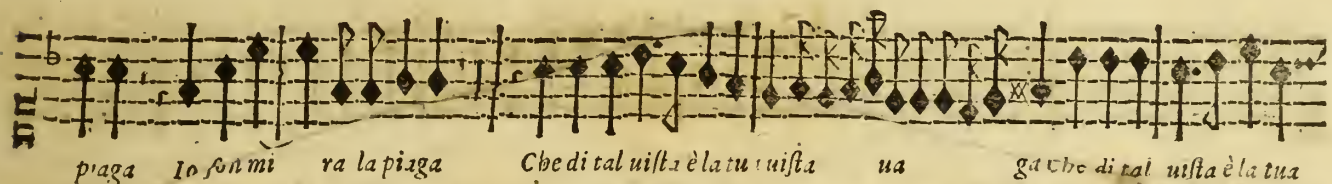 piaga Io son mi ra la piaga Che di tal uista è la tu uista ua ga Che di tal uista è la tua